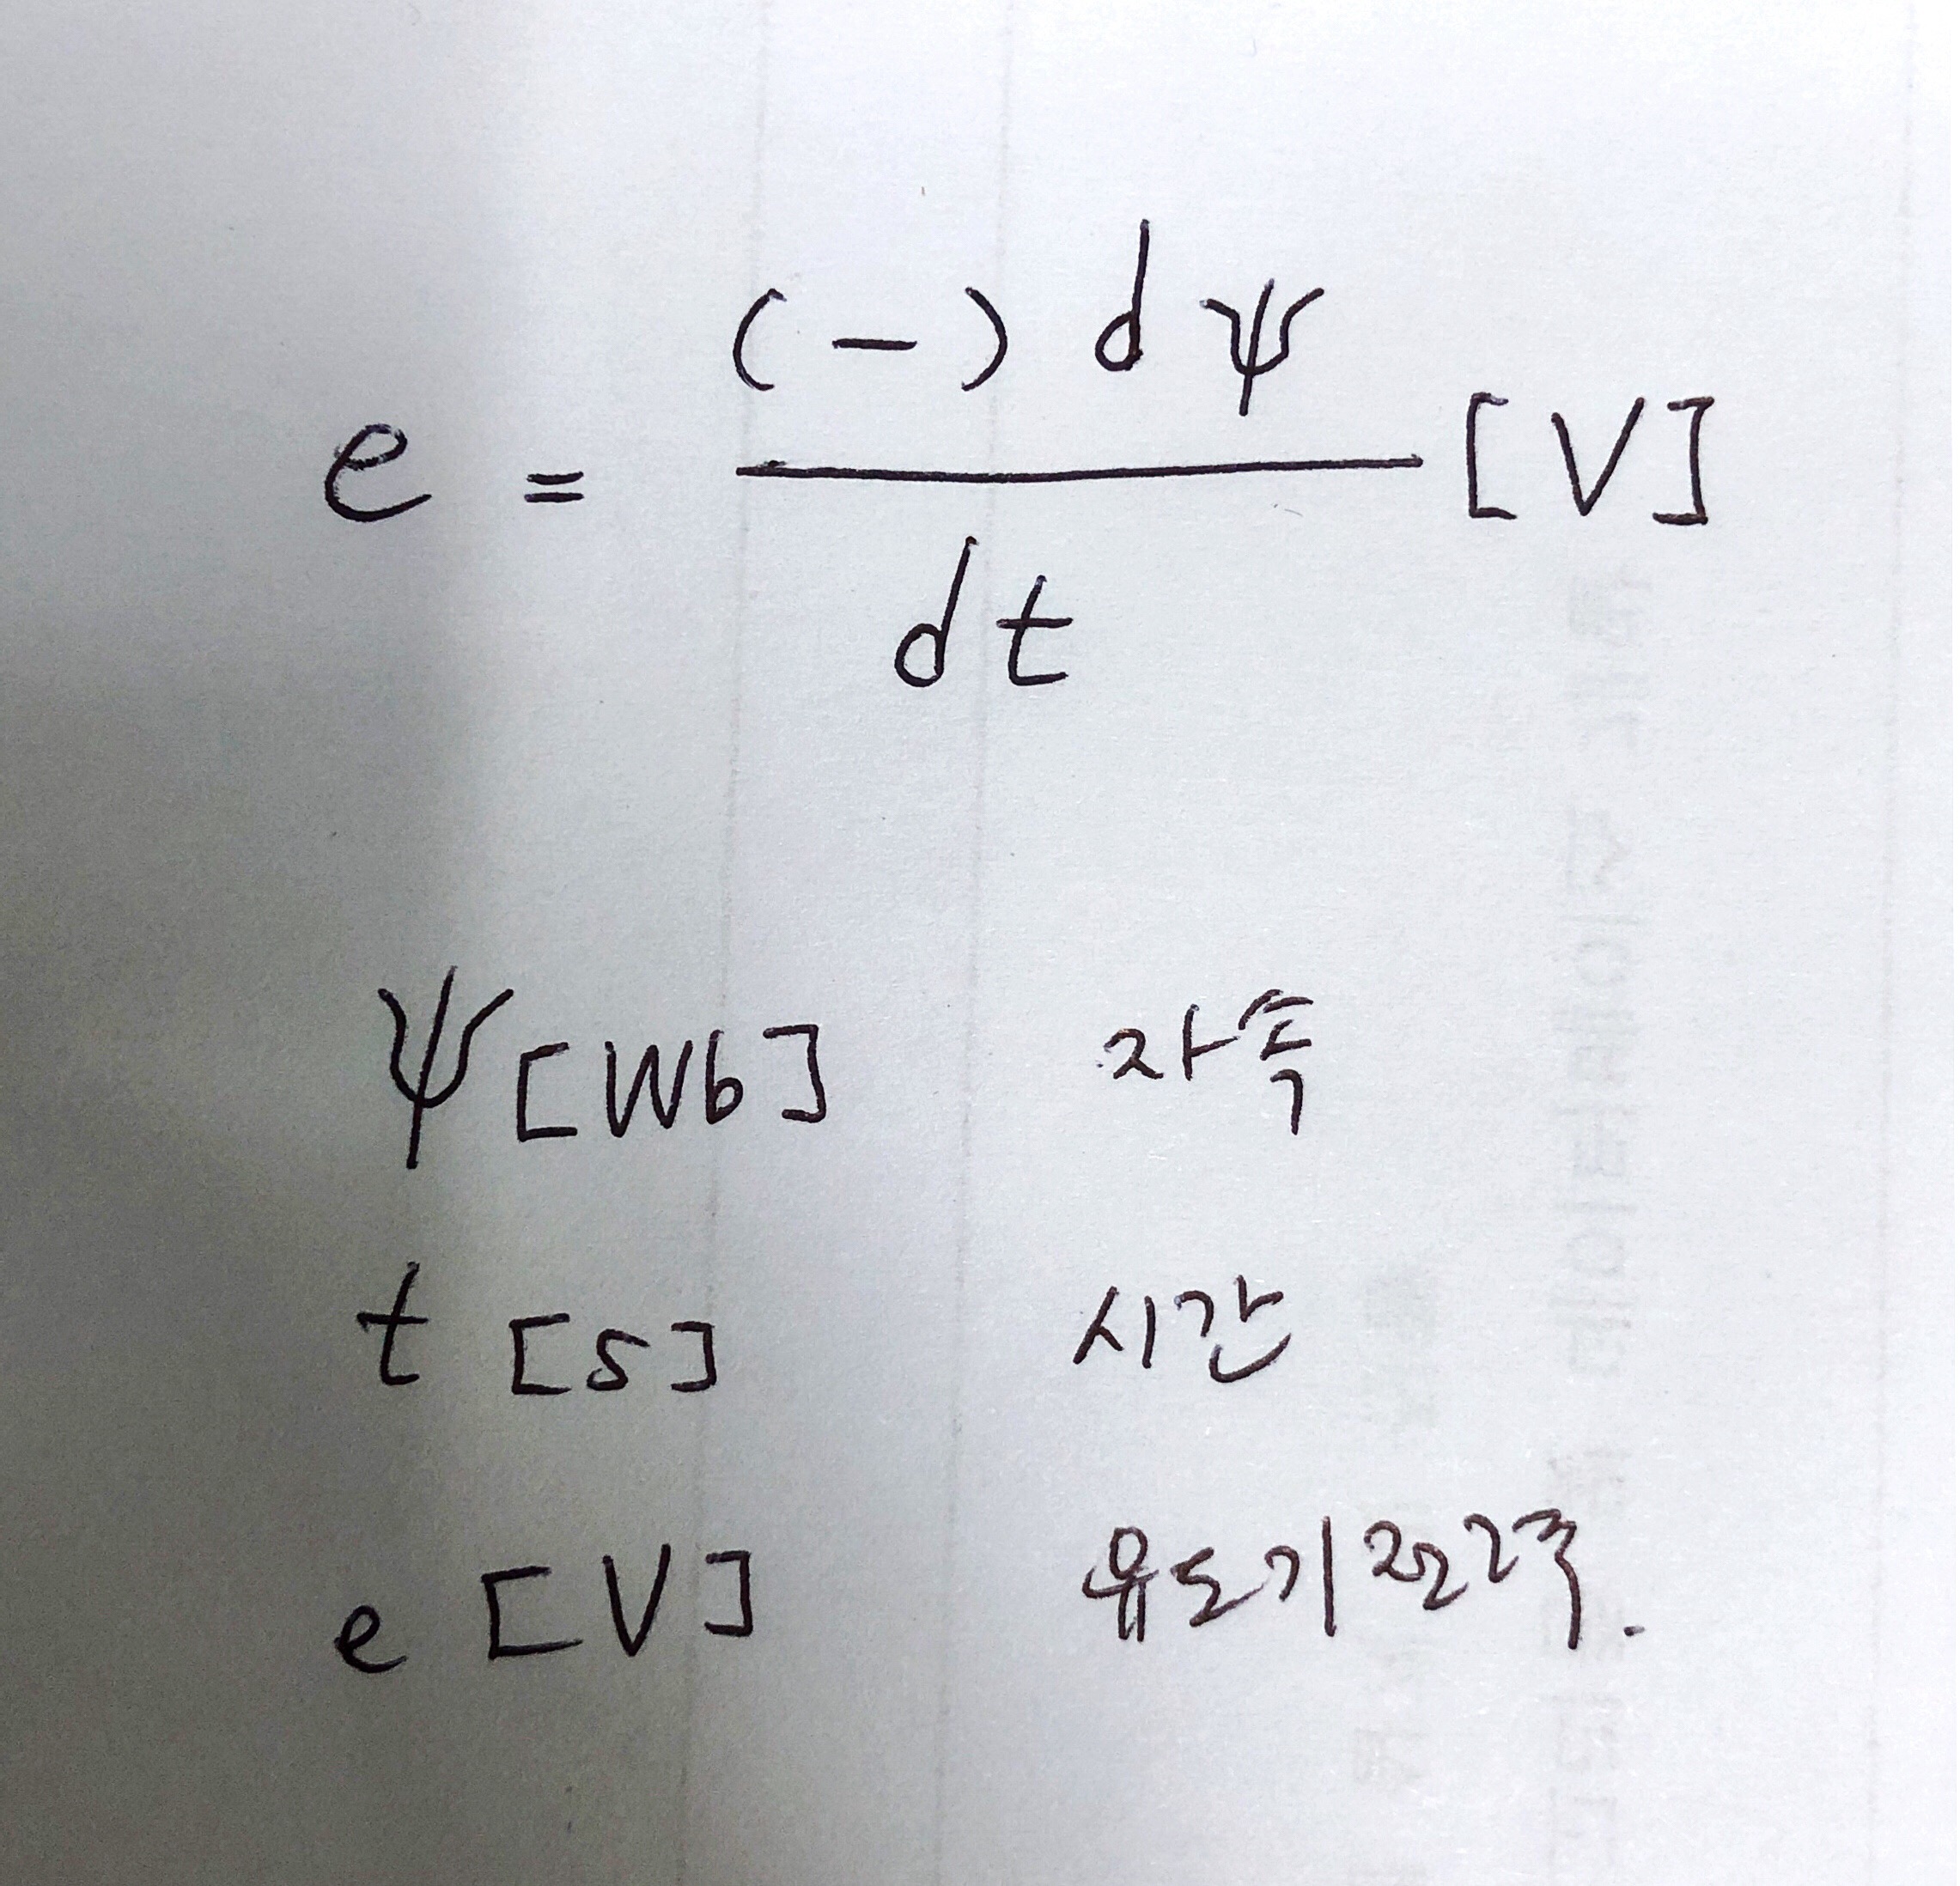 e = (-) dψ / dt [V]
ψ [Wb] 자속
t [s] 시간
e [V] 유도기전력.